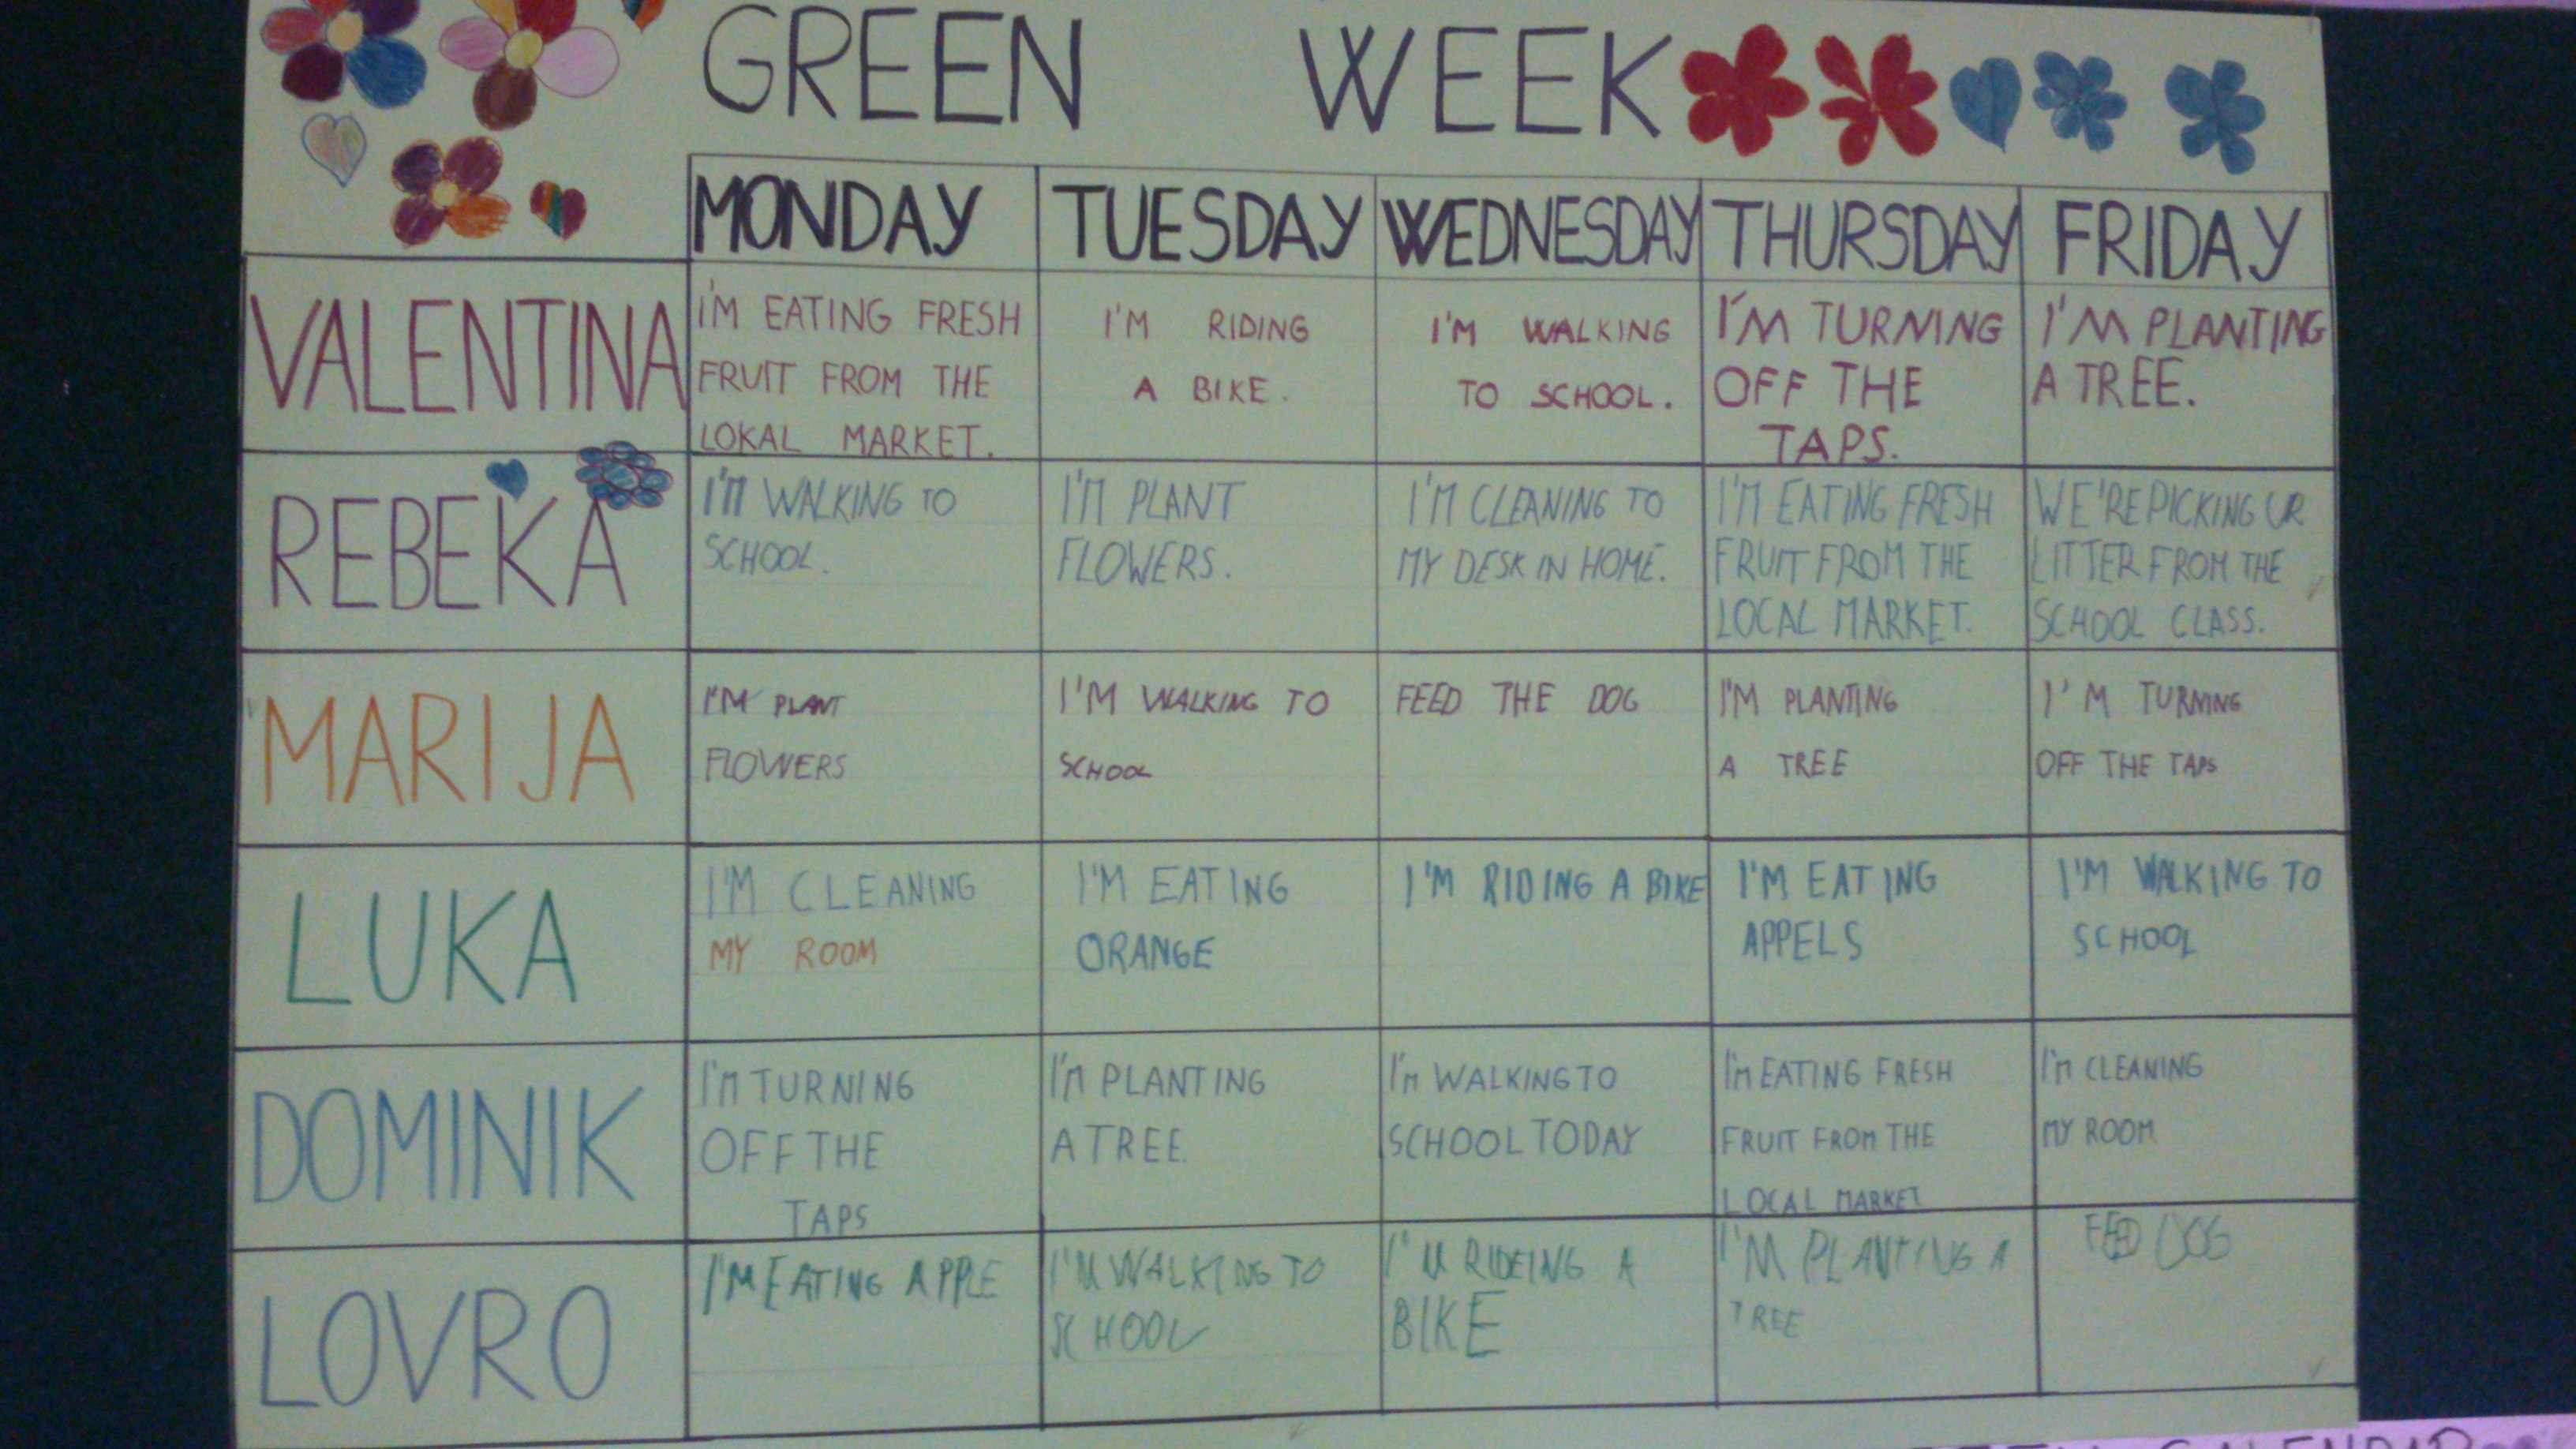 GREEN WEEK
MONDAY TUESDAY WEDNESDAY THURSDAY FRIDAY
VALENTINA
I'M EATING FRESH
FRUIT FROM THE
LOKAL MARKET.
I'M RIDING
A BIKE.
I'M WALKING
TO SCHOOL.
I'M TURNING
OFF THE
TAPS.
I'M PLANTING
A TREE.
REBEKA
I'M WALKING TO
SCHOOL.
I'M PLANT
FLOWERS.
I'M CLEANING TO
MY DESK IN HOME.
I'M EATING FRESH
FRUIT FROM THE
LOCAL MARKET.
WE'RE PICKING
LITTER FROM THE
SCHOOL CLASS.
MARIJA
I'M PLANT
FLOWERS
I'M WALKING TO
SCHOOL
FEED THE DOG
I'M PLANTING
A TREE
I'M TURNING
OFF THE TAPS
LUKA
I'M CLEANING
MY ROOM
I'M EATING
ORANGE
I'M RIDING A BIKE
I'M EATING
APPELS
I'M WALKING TO
SCHOOL
DOMINIK
I'M TURNING
OFF THE
TAPS
I'M PLANTING
A TREE.
I'M WALKING TO
SCHOOL TODAY
I'M EATING FRESH
FRUIT FROM THE
LOCAL MARKET
I'M CLEANING
MY ROOM
LOVRO
I'M EATING APPLE
I'M WALKING TO
SCHOOL
I'M RIDEING A
BIKE
I'M PLANTING A
TREE
FEED DOG